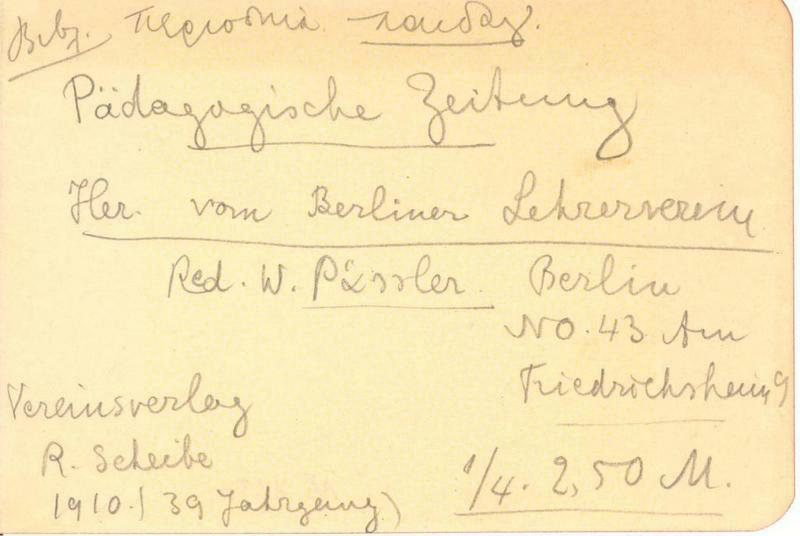 Περιοδικά παιδαγ.
Pädagogische Zeitung
Her. vom Berliner Lehrerverein
Red. W. Pässler. Berlin
NO. 43 Am
Friedrichshain 9
Vereinsverlag
R. Scheibe
1910. (39 Jahrgang)
1/4. 2,50 M.